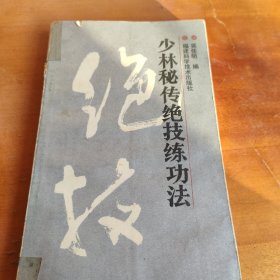 少林秘传绝技练功法
编
福建科学技术出版社
绝技